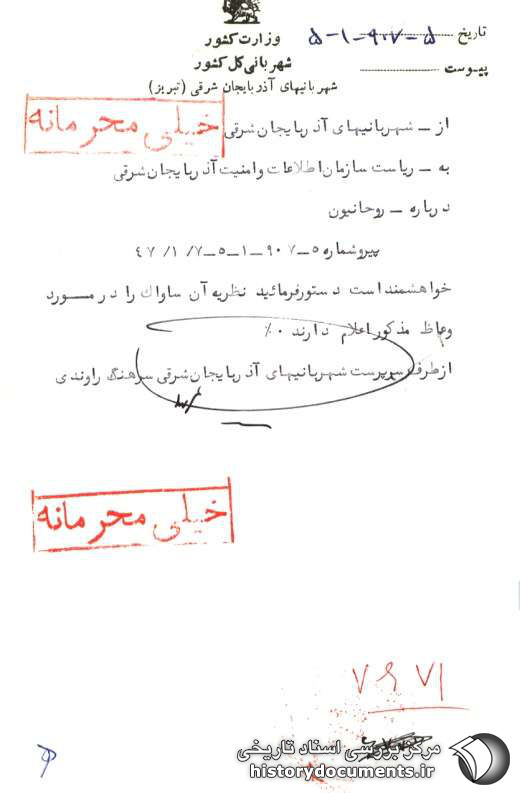 وزارت کشور
شهربانی کل کشور
شهربانیهای آذربایجان شرقی (تبریز)
تاریخ ۵-۹۰۷-۱-۵
پیوست
خیلی محرمانه
از ــ شهربانیهای آذربایجان شرقی
به ــ ریاست سازمان اطلاعات و امنیت آذربایجان شرقی
درباره ــ روحانیون
پیرو شماره ۵ــ۹۰۷ــ۱ــ۵ــ۷/ ۱/ ۴۷
خواهشمند است دستور فرمائید نظریه آن ساواك را در مورد
وعاظ مذکور اعلام دارند ۰٪
از طرف سرپرست شهربانیهای آذربایجان شرقی سرهنگ راوندی
خیلی محرمانه
مرکز بررسی اسناد تاریخی
historydocuments.ir